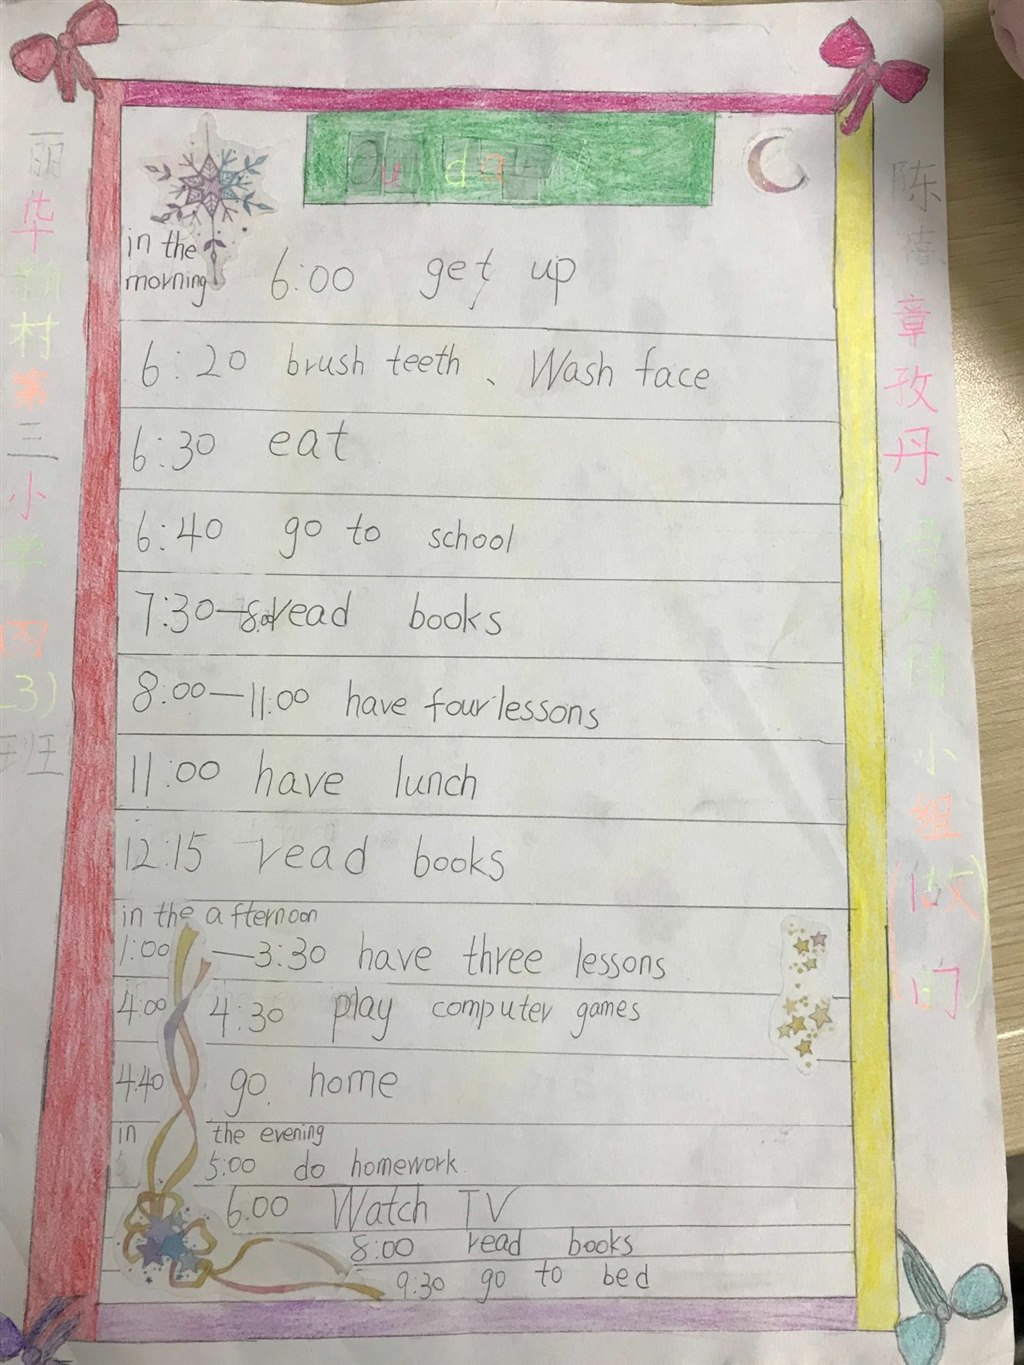 Our day
in the
morning 6:00 get up
6:20 brush teeth、Wash face
6:30 eat
6:40 go to school
7:30—8:00 read books
8:00—11:00 have four lessons
11:00 have lunch
12:15 read books
in the afternoon
1:00—3:30 have three lessons
4:00 4:30 play computer games
4:40 go home
in the evening
5:00 do homework
6:00 Watch TV
8:00 read books
9:30 go to bed
丽华新村第三小学四(3)班
陈 章孜丹、 小组(做的)